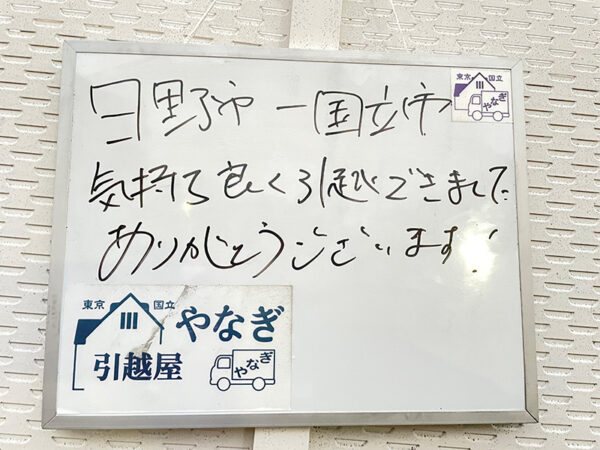 日野市 ー 国立市
東京 国立
やなぎ
気持ち良く引越できました
ありがとうございます!
東京 国立
やなぎ
引越屋
やなぎ